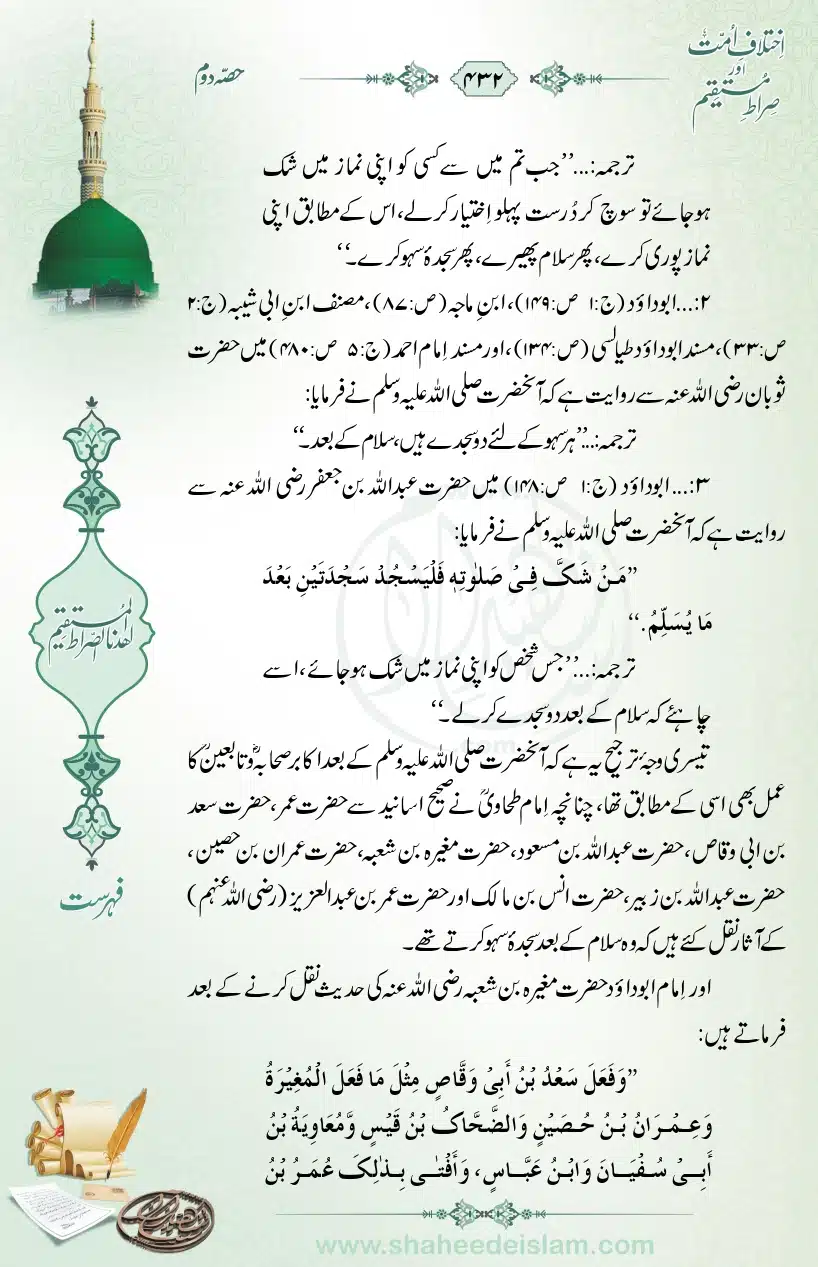 اِختلافِ اُمت
اور
صراطِ مستقیم
۴۳۲
حصّہ دوم
ترجمہ:...’’جب تم میں سے کسی کو اپنی نماز میں شک
ہوجائے تو سوچ کر دُرست پہلو اِختیار کرلے، اس کے مطابق اپنی
نماز پوری کرے، پھر سلام پھیرے، پھر سجدۂ سہو کرے۔‘‘
۲:...ابوداؤد (ج:۱ ص:۱۴۹)، ابنِ ماجہ (ص:۸۷)، مصنف ابنِ ابی شیبہ (ج:۲
ص:۳۳)، مسند ابوداؤد طیالسی (ص:۱۳۴)، اور مسند اِمام احمد (ج:۵ ص:۴۸۰) میں حضرت
ثوبان رضی اللہ عنہ سے روایت ہے کہ آنحضرت صلی اللہ علیہ وسلم نے فرمایا:
ترجمہ:...’’ہر سہو کے لئے دو سجدے ہیں، سلام کے بعد۔‘‘
۳:...ابوداؤد (ج:۱ ص:۱۴۸) میں حضرت عبداللہ بن جعفر رضی اللہ عنہ سے
روایت ہے کہ آنحضرت صلی اللہ علیہ وسلم نے فرمایا:
’’مَنْ شَکَّ فِیْ صَلٰوتِہٖ فَلْیَسْجُدْ سَجْدَتَیْنِ بَعْدَ
مَا یُسَلِّمُ.‘‘
ترجمہ:...’’جس شخص کو اپنی نماز میں شک ہوجائے، اسے
چاہئے کہ سلام کے بعد دو سجدے کرلے۔‘‘
تیسری وجۂ ترجیح یہ ہے کہ آنحضرت صلی اللہ علیہ وسلم کے بعد اکابر صحابہؓ و تابعینؒ کا
عمل بھی اسی کے مطابق تھا، چنانچہ اِمام طحاویؒ نے صحیح اسانید سے حضرت عمر، حضرت سعد
بن ابی وقاص، حضرت عبداللہ بن مسعود، حضرت مغیرہ بن شعبہ، حضرت عمران بن حصین،
حضرت عبداللہ بن زبیر، حضرت انس بن مالک اور حضرت عمر بن عبدالعزیز (رضی اللہ عنہم)
کے آثار نقل کئے ہیں کہ وہ سلام کے بعد سجدۂ سہو کرتے تھے۔
اور اِمام ابوداؤد حضرت مغیرہ بن شعبہ رضی اللہ عنہ کی حدیث نقل کرنے کے بعد
فرماتے ہیں:
’’وَفَعَلَ سَعْدُ بْنُ أَبِیْ وَقَّاصٍ مِثْلَ مَا فَعَلَ الْمُغِیْرَةُ
وَعِمْرَانُ بْنُ حُصَیْنٍ وَالضَّحَّاکُ بْنُ قَیْسٍ وَّمُعَاوِیَةُ بْنُ
أَبِیْ سُفْیَانَ وَابْنُ عَبَّاسٍ، وَأَفْتٰی بِذٰلِکَ عُمَرُ بْنُ
اھدنا الصراط المستقیم
فہرست
www.shaheedeislam.com